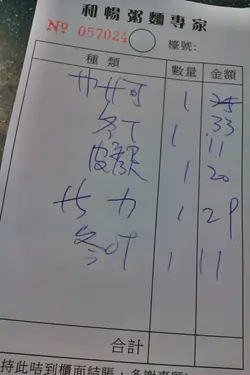 和暢粥麵專家
No 057024 檯號:
種類 數量 金額
1 25
33
冬丁 1 11
皮 1 20
力 1 29
冬 1 11
合計
持此咭到櫃面結賬,多謝惠顧